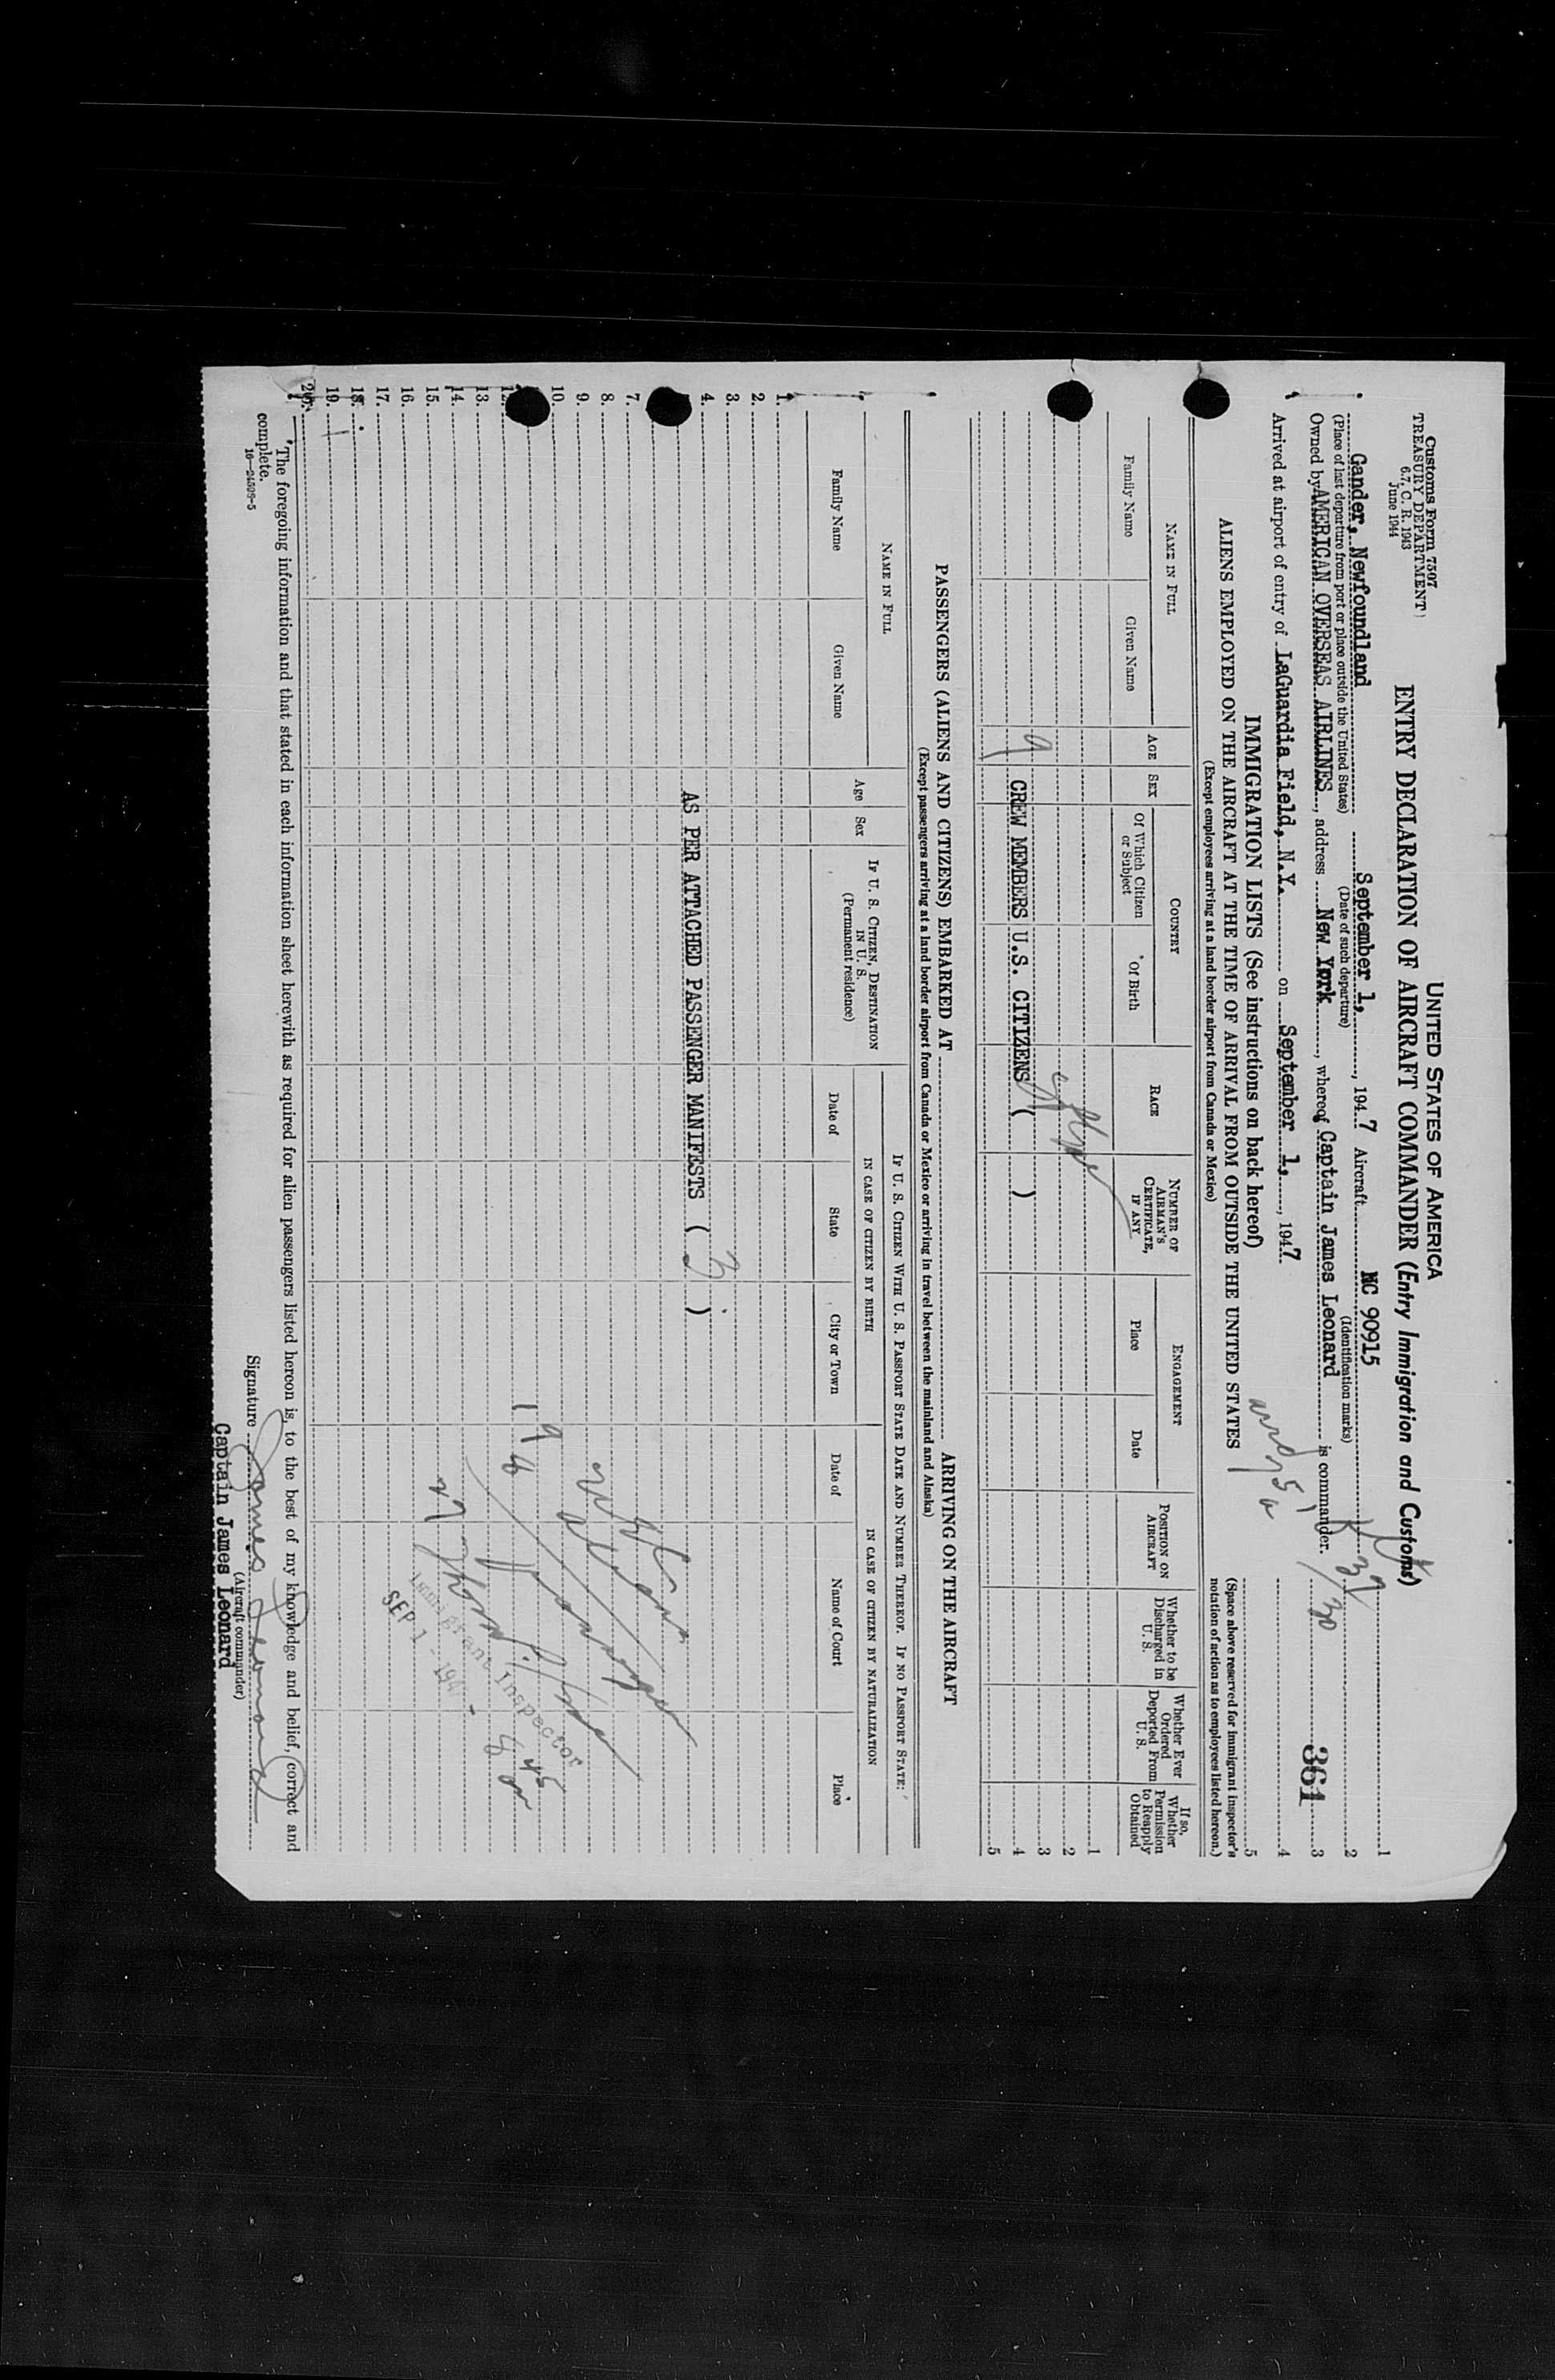 Customs Form 7507
TREASURY DEPARTMENT
6.7, C. R. 1943
June 1944
UNITED STATES OF AMERICA
ENTRY DECLARATION OF AIRCRAFT COMMANDER (Entry Immigration and Customs)
Gander, Newfoundland September 1, , 1947 Aircraft NC 90915
(Place of last departure from port or place outside the United States) (Date of such departure) (Identification marks)
Owned by AMERICAN OVERSEAS AIRLINES , address New York , whereof Captain James Leonard is commander.
Arrived at airport of entry of LaGuardia Field, N.Y. on September 1, , 1947
1
2
3
4
5
361
(Space above reserved for immigrant inspector's notation of action as to employees listed hereon.)
IMMIGRATION LISTS (See instructions on back hereof)
ALIENS EMPLOYED ON THE AIRCRAFT AT THE TIME OF ARRIVAL FROM OUTSIDE THE UNITED STATES
(Except employees arriving at a land border airport from Canada or Mexico)
NAME IN FULL
Family Name
Given Name
AGE
SEX
COUNTRY
Of Which Citizen or Subject
Of Birth
RACE
NUMBER OF AIRMAN'S CERTIFICATE, IF ANY
ENGAGEMENT
Place
Date
POSITION ON AIRCRAFT
Whether to be Discharged in U. S.
Whether Ever Ordered Deported From U. S.
If so, Whether Permission to Reapply Obtained
1
2
3
9 CREW MEMBERS U.S. CITIZENS ( ) 4
5
PASSENGERS (ALIENS AND CITIZENS) EMBARKED AT ARRIVING ON THE AIRCRAFT
(Except passengers arriving at a land border airport from Canada or Mexico or arriving in travel between the mainland and Alaska)
NAME IN FULL
Family Name
Given Name
Age
Sex
IF U. S. CITIZEN, DESTINATION IN U. S.
(Permanent residence)
IF U. S. CITIZEN WITH U. S. PASSPORT STATE DATE AND NUMBER THEREOF. IF NO PASSPORT STATE:
IN CASE OF CITIZEN BY BIRTH
Date of
State
City or Town
IN CASE OF CITIZEN BY NATURALIZATION
Date of
Name of Court
Place
1.
2.
3.
4.
AS PER ATTACHED PASSENGER MANIFESTS ( )
7.
8.
9.
10.
13.
14.
15.
16.
17.
18.
19.
20.
Immigrant Inspector
SEP 1 - 1947
The foregoing information and that stated in each information sheet herewith as required for alien passengers listed hereon is, to the best of my knowledge and belief, correct and
complete.
16—24509-5
Signature James Leonard
(Aircraft commander)
Captain James Leonard